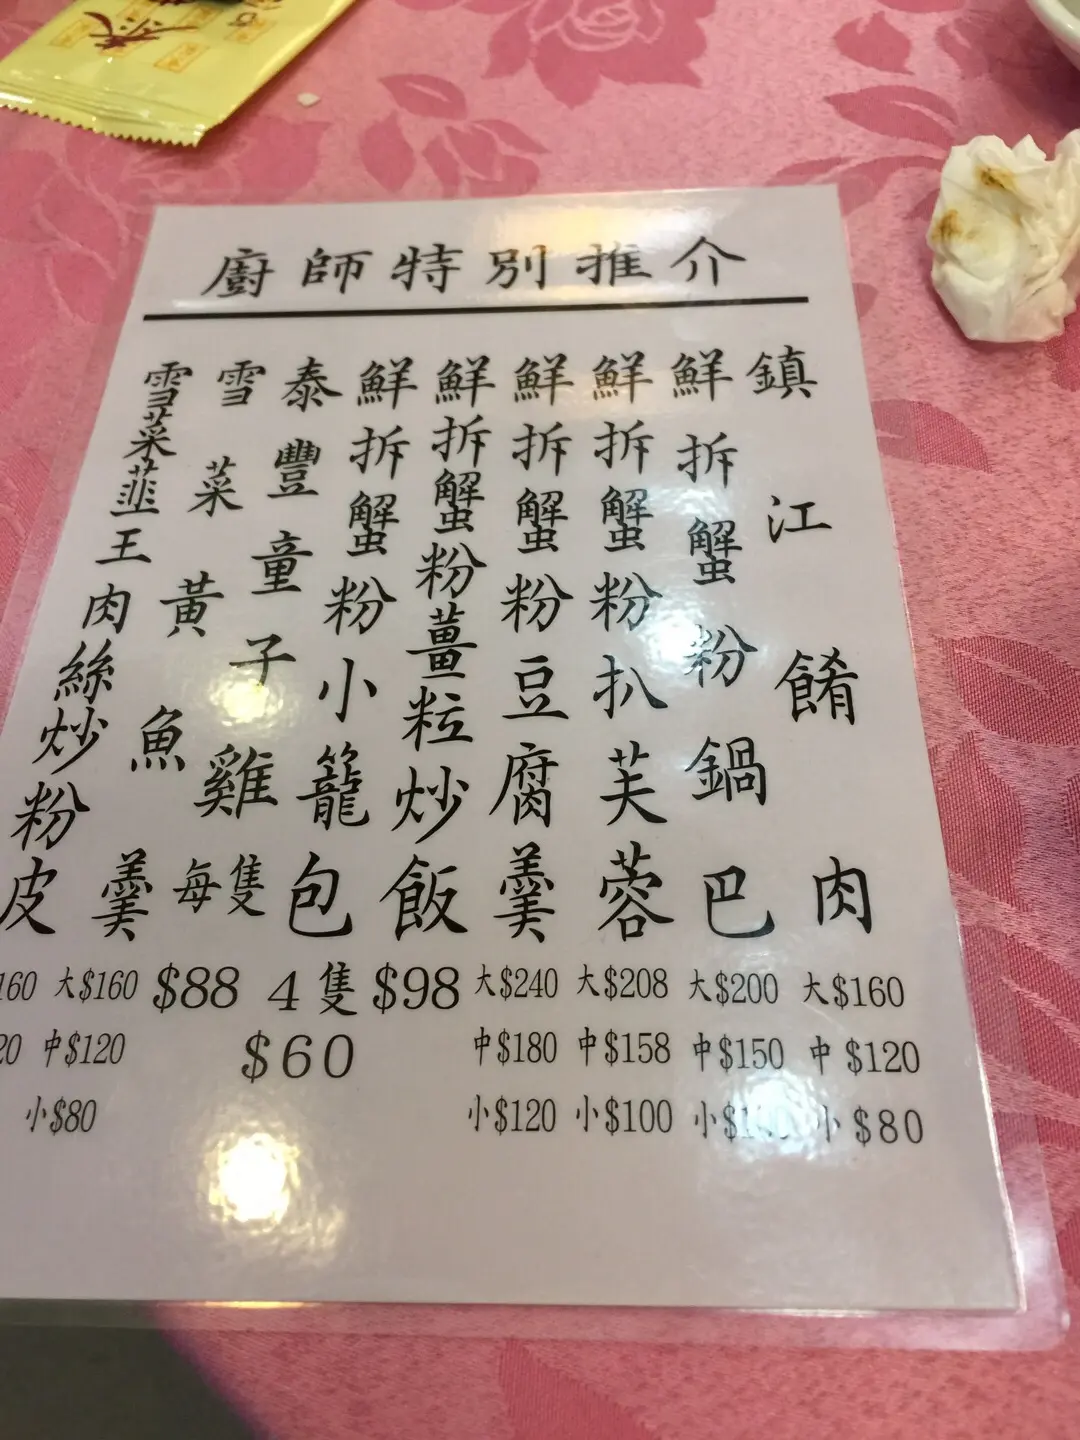 廚師特別推介
鎮江餚肉
大$160
中$120
小$80
鮮拆蟹粉鍋巴
大$200
中$150
鮮拆蟹粉扒芙蓉
大$208
中$158
小$100
鮮拆蟹粉豆腐羹
大$240
中$180
小$120
鮮拆蟹粉薑粒炒飯
$98
鮮拆蟹粉小籠包
4隻
$60
泰豐童子雞
每隻
$88
雪菜黃魚羹
大$160
中$120
小$80
雪菜韮王肉絲炒粉皮
160
20